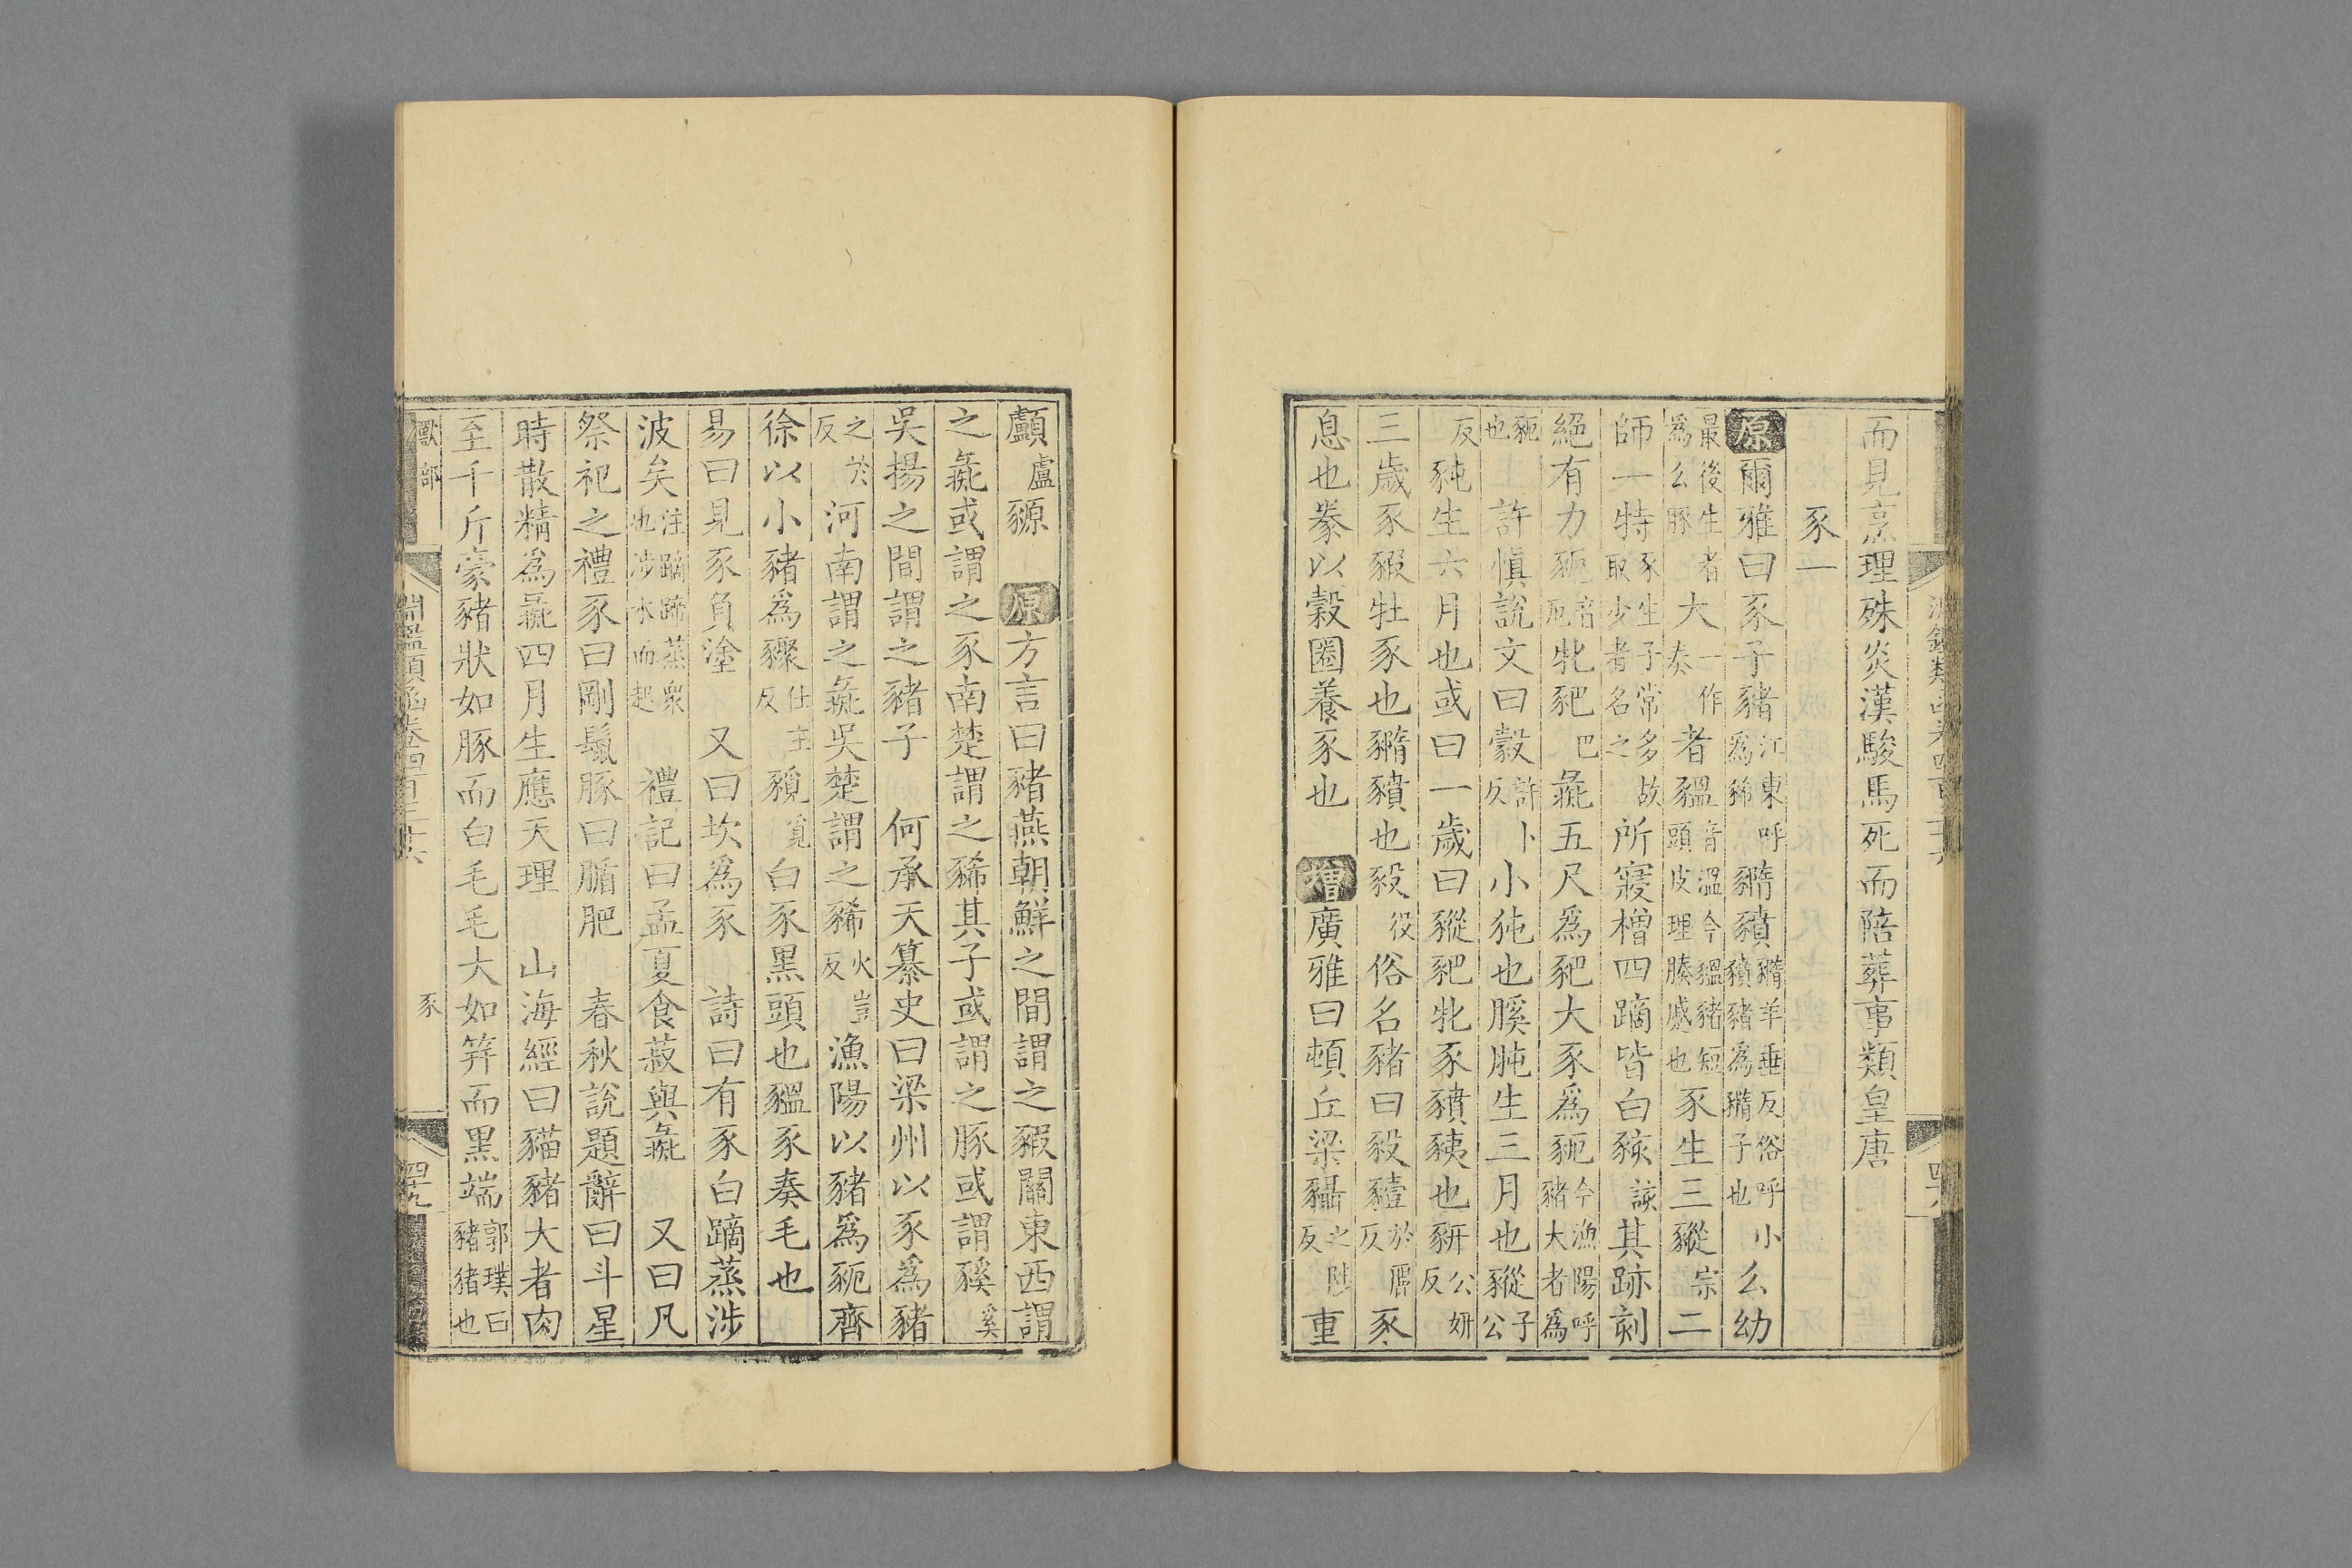 而見烹理殊炎漢駿馬死而陪葬事類皇唐
豕一
原爾雅曰豕子豬江東呼爲豨䝐豶䝐羊垂反俗呼小豶豬爲䝐子也么幼
最後生者爲么豚大一作奏者豱音溫今豱豬短頭皮理腠蹙也豕生三豵宗二
師一特豕生子常多故取少者名之所寢橧四蹢皆白豥該其跡刻
絕有力豟音厄牝豝巴彘五尺爲豝大豕爲豟今漁陽呼豬大者爲
豟也許慎說文曰豰許卜反小㹠也豯肫生三月也豵子公
反豘生六月也或曰一歲曰豵豝牝豕豶䝑也豜公妍反
三歲豕豭牡豕也䝐豶也豛役俗名豬曰豛豷於豕
息也豢以穀圈養豕也增廣雅曰頓丘梁反重
顱盧豲原方言曰豬燕朝鮮之間謂之豭關東西謂
之彘或謂之豕南楚謂之豨其子或謂之豚或謂豯奚
吳揚之間謂之豬子何承天纂史曰梁州以豕爲豬
之於反河南謂之彘吳楚謂之豨火豈反漁陽以豬爲豝齊
徐以小豬爲䝒仕主反䝘白豕黑頭也豱豕奏毛也
易曰見豕負塗又曰坎爲豕詩曰有豕白蹢蒸涉
波矣注蹢蹄蒸衆也涉水而起禮記曰孟夏食菽與彘又曰凡
祭祀之禮豕曰剛鬣豚曰腯肥春秋說題辭曰斗星
時散精爲彘四月生應天理山海經曰貓豬大者肉
至千斤豪豬狀如豚而白毛毛大如筓而黑端郭璞曰豬豬也
獸部淵鑑類函卷四百三十六豕四十九